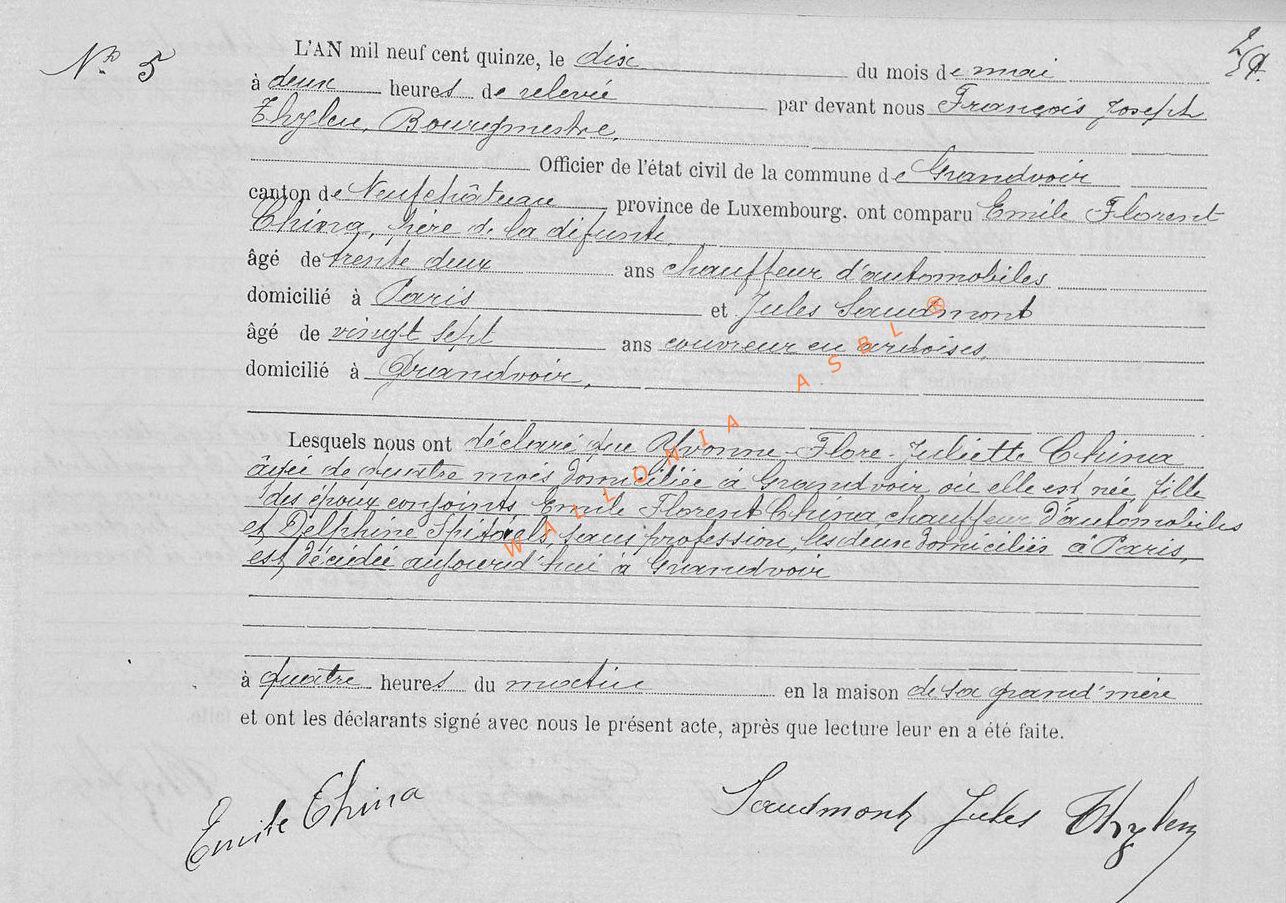 N° 5
L'AN mil neuf cent quinze, le dix du mois de mai
à deux heures de relevée par devant nous François Joseph
Thylen, Bourgmestre,
Officier de l'état civil de la commune de Grandvoir
canton de Neufchâteau province de Luxembourg. ont comparu Emile Florent
China, père de la défunte,
âgé de trente deux ans chauffeur d'automobiles
domicilié à Paris et Jules Saudmont
âgé de vingt sept ans couvreur en ardoises,
domicilié à Grandvoir,
Lesquels nous ont déclaré que Yvonne-Flore-Juliette China
âgée de quatre mois domiciliée à Grandvoir où elle est née, fille
des époux conjoints Emile Florent China, chauffeur d'automobiles
et Delphine sans profession, les deux domiciliés à Paris,
est décédée aujourd'hui à Grandvoir
à quatre heures du matin en la maison de sa grand'mère
et ont les déclarants signé avec nous le présent acte, après que lecture leur en a été faite.
Emile China
Saudmont Jules Thylen
WALLONIA ASBL ©